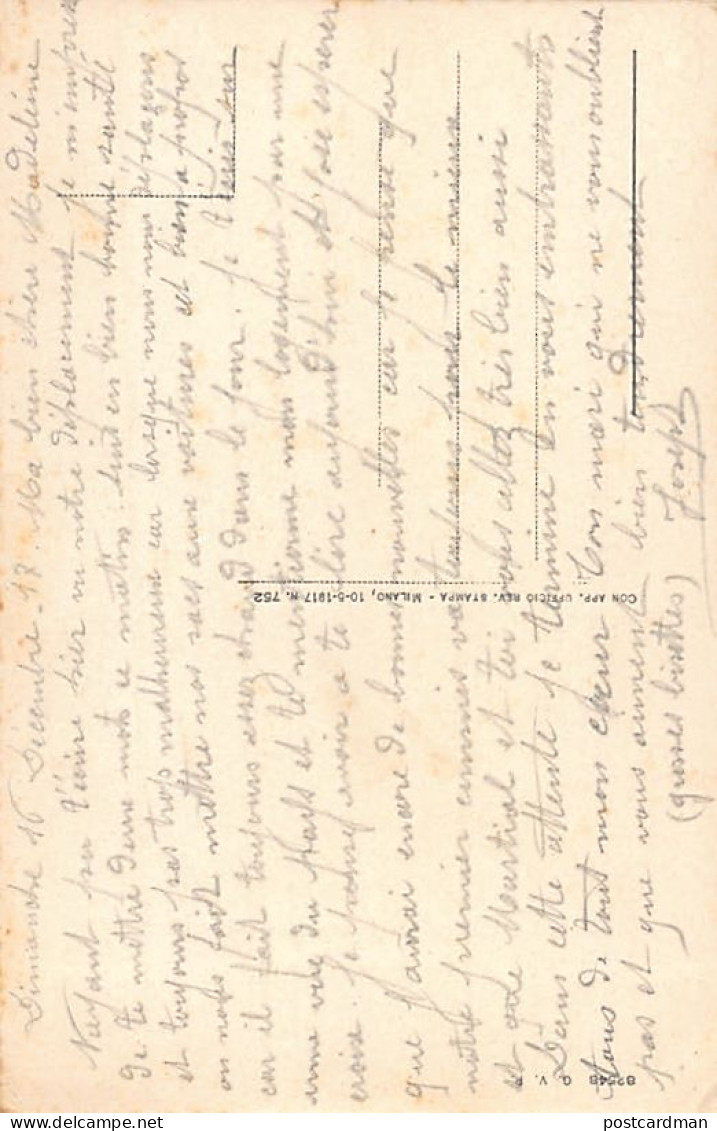 Dimanche 16 Décembre 17. Ma bien chère Madeleine
N'ayant pu t'écrire hier vu notre déplacement je m'empresse
de te mettre deux mots ce matin. Suis en bien bonne santé
et toujours pas trop malheureux car lorsque nous nous déplaçons
on nous fait mettre nos sacs aux voitures et bien à propos
car il fait toujours assez chaud dans le jour. Je
une vue du et te mentionne mon logement par une
croix. Je pense avoir a te lire aujourd'hui et j'ose espérer
que j'aurai encore de bonnes nouvelles car je pense que
notre premier commis va toujours pour le mieux
et que Martial et toi vous allez très bien aussi
Dans cette attente je termine en vous embrassant
tous de tout mon cœur Ton mari qui ne vous oublient
pas et que vous aiment bien tendrement
(grosses bisettes) Joseph
CON APP. UFFICIO REV. STAMPA - MILANO, 10-5-1917 N. 752
82548 G. V. P.
delcampe.net
postcardman